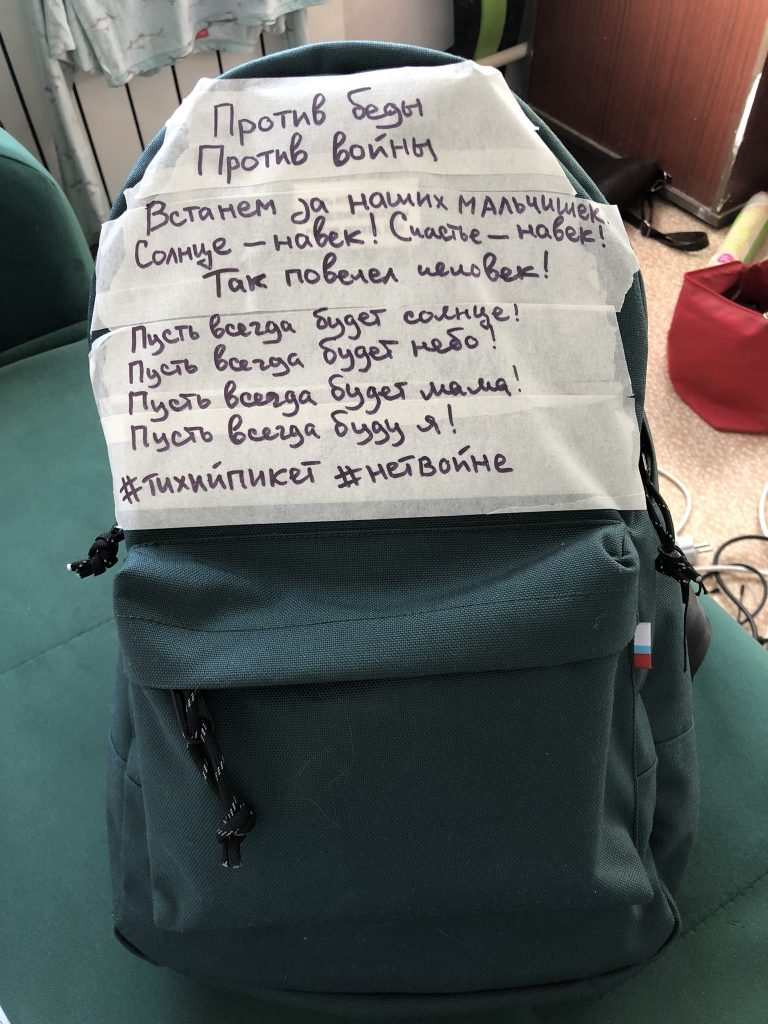 Против беды
Против войны
Встанем за наших мальчишек.
Солнце – навек! Счастье – навек!
Так повелел человек!
Пусть всегда будет солнце!
Пусть всегда будет небо!
Пусть всегда будет мама!
Пусть всегда буду я!
#тихийпикет #нетвойне